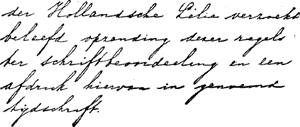 der Hollandsche Lelie verzoekt
beleefd opzending dezer regels
ter schriftbeoordeeling en een
afdruk hiervan in genoemd
tijdschrift.